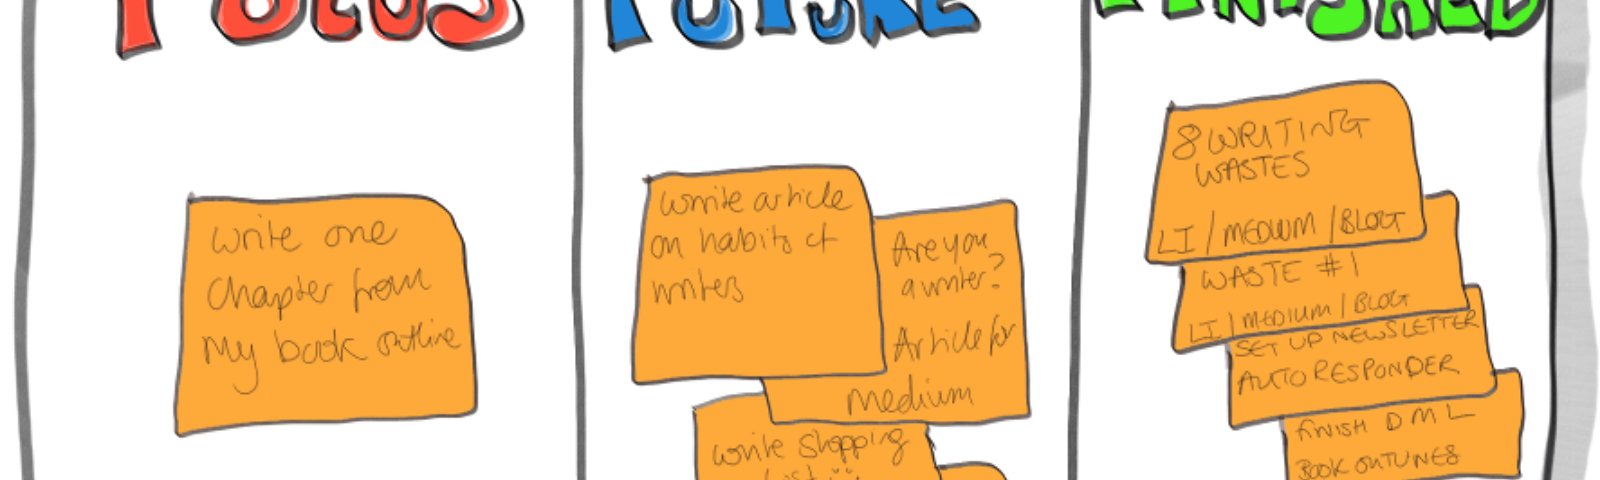 FOCUS
write one
chapter from
My book outline
FUTURE
write article
on habits of
writers
Are you
a writer?
Article for
Medium
write shopping
list
FINISHED
8 WRITING
WASTES
LI / MEDIUM / BLOG
WASTE #1
LI / MEDIUM / BLOG
SET UP NEWSLETTER
AUTORESPONDER
FINISH DML
BOOK OUTLINES